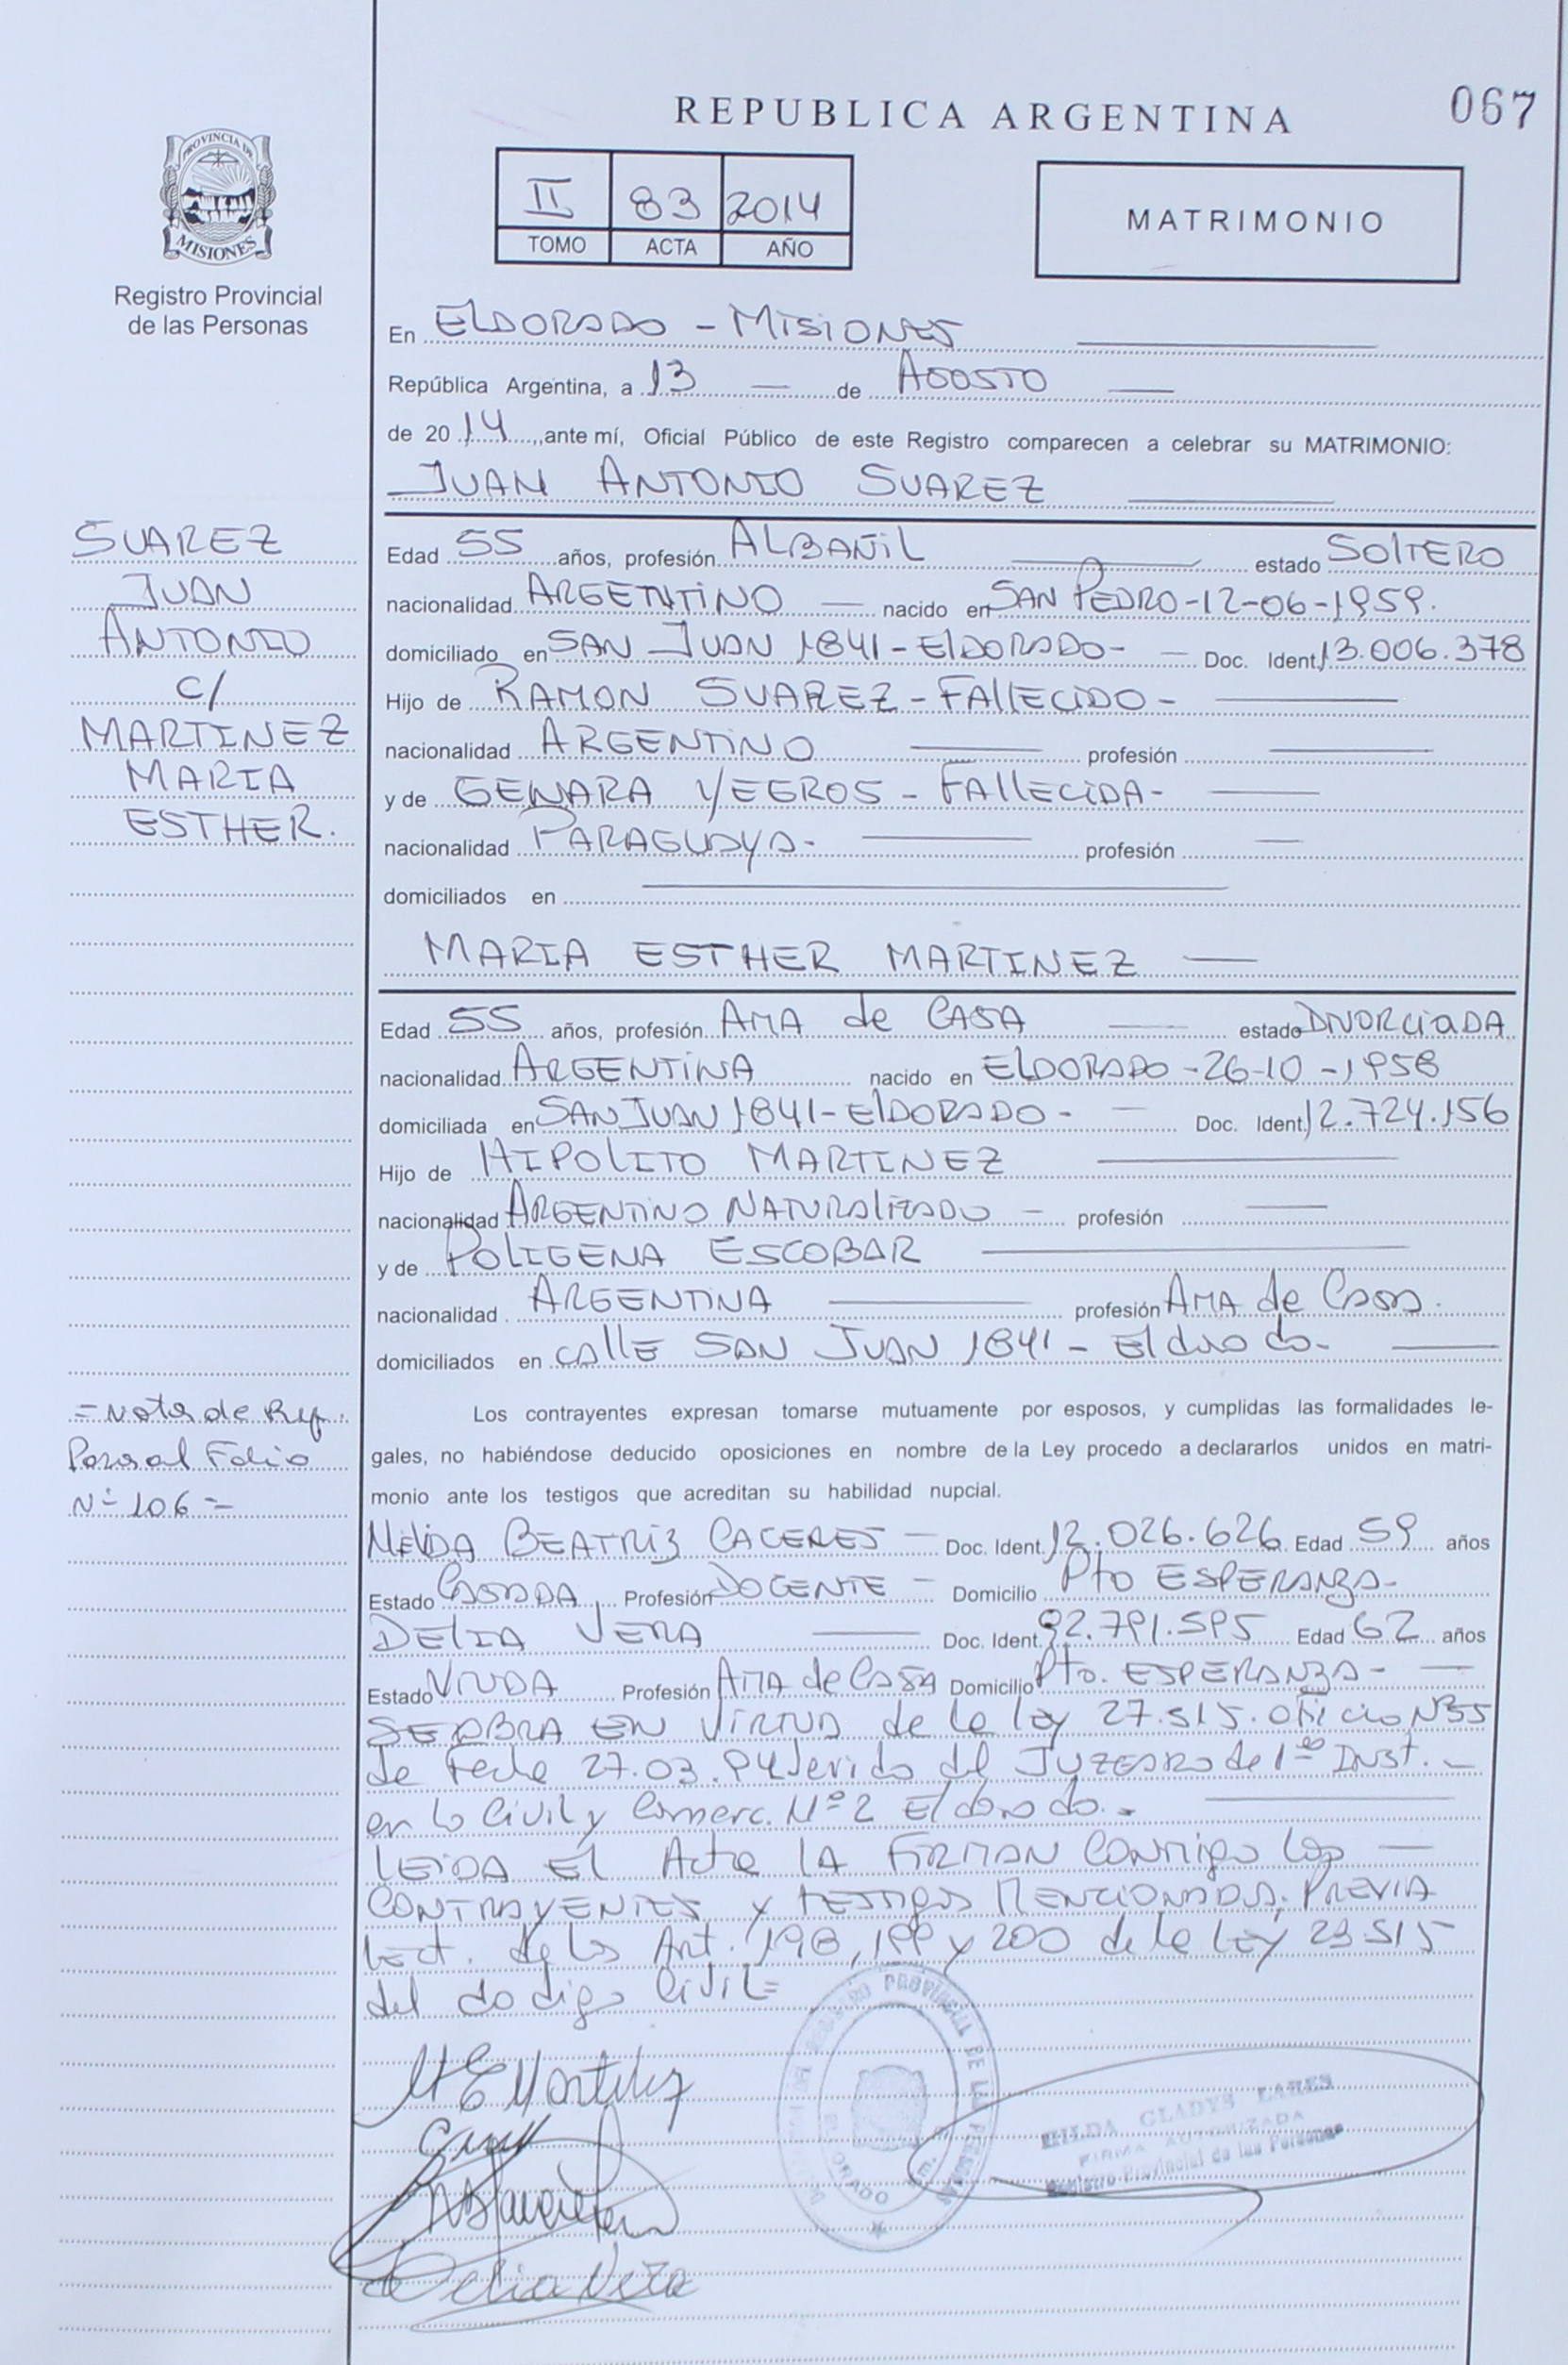 067
REPUBLICA ARGENTINA
PROVINCIA DE
MISIONES
Registro Provincial
de las Personas
II 83 2014
TOMO ACTA AÑO
MATRIMONIO
En ELDORADO - MISIONES
República Argentina, a 13 de AGOSTO
de 2014, ante mí, Oficial Público de este Registro comparecen a celebrar su MATRIMONIO:
JUAN ANTONIO SUAREZ
SUAREZ
JUAN
ANTONIO
C/
MARTINEZ
MARIA
ESTHER.
Edad 55 años, profesión ALBAÑIL estado SOLTERO
nacionalidad ARGENTINO nacido en SAN PEDRO-12-06-1959.
domiciliado en SAN JUAN 1841-ELDORADO- Doc. Ident. 13.006.378
Hijo de RAMON SUAREZ-FALLECIDO-
nacionalidad ARGENTINO profesión
y de GENARA YEGROS-FALLECIDA-
nacionalidad PARAGUAYA- profesión
domiciliados en
MARIA ESTHER MARTINEZ
Edad 55 años, profesión AMA de CASA estado DIVORCIADA
nacionalidad ARGENTINA nacido en ELDORADO-26-10-1958
domiciliada en SAN JUAN 1841-ELDORADO- Doc. Ident. 12.724.156
Hijo de HIPOLITO MARTINEZ
nacionalidad ARGENTINO NATURALIZADO - profesión
y de POLIGENA ESCOBAR
nacionalidad ARGENTINA profesión AMA de CASA.
domiciliados en CALLE SAN JUAN 1841 - Eldorado-
=Nota de Ref.
Pasa al Folio
Nº 106=
Los contrayentes expresan tomarse mutuamente por esposos, y cumplidas las formalidades le-
gales, no habiéndose deducido oposiciones en nombre de la Ley procedo a declararlos unidos en matri-
monio ante los testigos que acreditan su habilidad nupcial.
NELIDA BEATRIZ CACERES - Doc. Ident. 12.026.626 Edad 59 años
Estado CASADA Profesión DOCENTE - Domicilio Pto ESPERANZA-
DELIA VERA Doc. Ident. 92.791.595 Edad 62 años
Estado VIUDA Profesión AMA de CASA Domicilio Pto. ESPERANZA-
SE OBRA EN VIRTUD de la ley 27.515. Oficio Nº35
de Fecha 27.03.94 del JUZGADO de 1ra INST.-
en lo Civil y Comerc. Nº 2 Eldorado.-
LEIDA EL Acta LA FIRMAN Conmigo los
CONTRAYENTES y TESTIGOS MENCIONADOS, PREVIA
lect. de los Art. 198, 199 y 200 de la ley 23515
del Codigo Civil=
M E Martinez
REGISTRO PROVINCIAL DE LAS PERSONAS
ELDORADO
HILDA GLADYS LARES
FIRMA AUTORIZADA
Registro Provincial de las Personas
Delia Vera